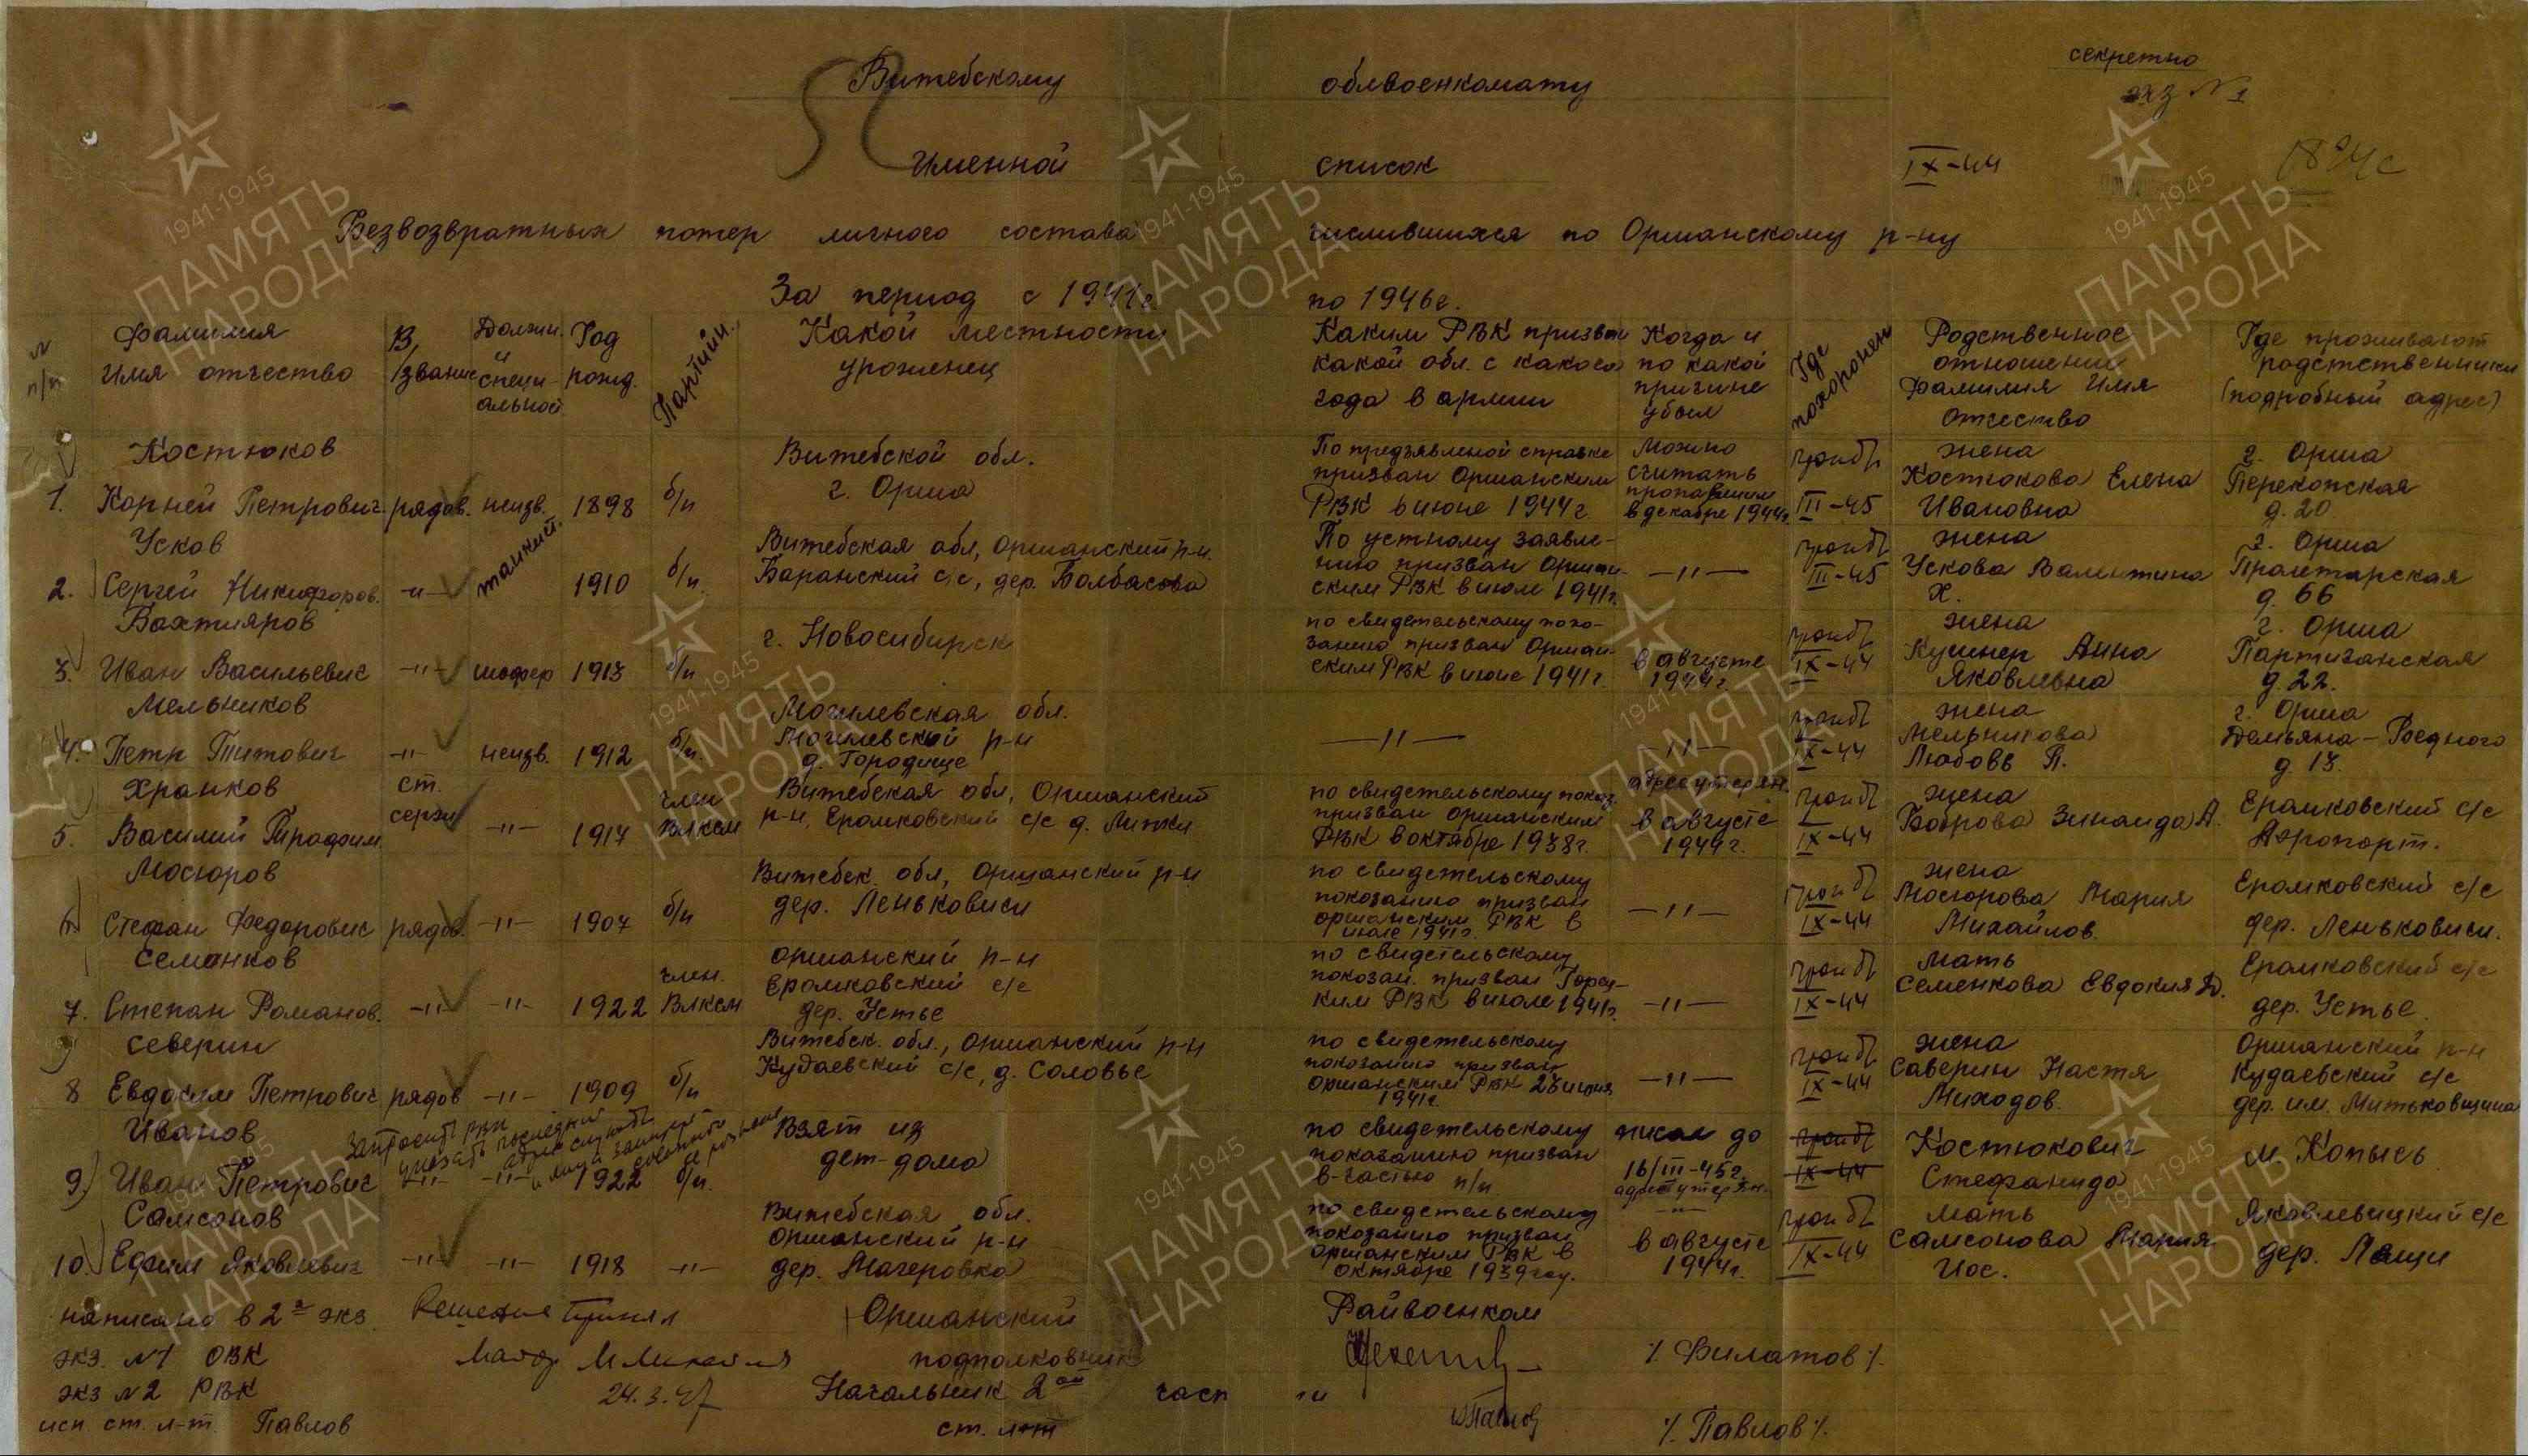 секретно
экз № 1
Витебскому облвоенкомату
Именной список
IX-44
Безвозвратных потер личного состава числившихся по Оршанскому р-ну
За период с 1941г по 1946г.
N п/п
Фамилия Имя отчество
В/звание
Должн. и специальной
Год рожд.
Партийн.
Какой местности уроженец
Каким РВК призван какой обл. с какого года в армии
Когда и по какой причине убыл
Где похоронен
Родственное отношение Фамилия Имя отчество
Где проживают родственники (подробный адрес)
1. Костюков Корней Петрович
рядов. неизв. 1898 б/п
Витебской обл. г. Орша
По предъявленой справке призван Оршанским РВК в июне 1944г
Можно считать пропавшим в декабре 1944г.
III-45
жена Костюкова Елена Ивановна
г. Орша Перекопская д. 20
2. Усков Сергей Никифоров.
-"- 1910 б/п.
Витебская обл, Оршанский р-н. Баранский с/с, дер. Болбасова
По устному заявлению призван Оршанским РВК в июле 1941г.
-"-
III-45
жена Ускова Валентина Х.
г. Орша Пролетарская д. 66
3. Вахтияров Иван Васильевич
-"- шофер 1913 б/п
г. Новосибирск
по свидетельскому показанию призван Оршанским РВК в июне 1941г.
в августе 1944г.
IX-44
жена Кушнер Анна Яковлевна
г. Орша Партизанская д. 22.
4. Мельников Петр Титович
-"- неизв. 1912 б/п.
Могилевская обл. Могилевский р-н д. Городище
-"-
-"-
IX-44
жена Мельникова Любовь П.
г. Орша Демьяна-Бедного д. 13
5. Храпков Василий Трафим.
ст. сержи -"- 1917 член ВЛКСМ
Витебская обл, Оршанский р-н, Еромковский с/с д.
по свидетельскому показ. призван Оршанским РВК в октябре 1938г.
адрес утерян. в августе 1944г.
IX-44
жена Боброва Зинаида А.
Еромковский с/с Аэропорт.
6. Мосюров Стефан Федорович
рядов. -"- 1907 б/п
Витебск. обл, Оршанский р-н дер. Леньковичи
по свидетельскому показанию призван оршанским РВК в июле 1941г.
-"-
IX-44
жена Мосюрова Мария Михайлов.
Еромковский с/с дер. Леньковичи.
7. Семенков Степан Романов.
-"- -"- 1922 член. ВЛКСМ
Оршанский р-н Еромковский с/с дер. Устье
по свидетельскому показан. призван РВК в июле 1941г.
-"-
IX-44
мать Семенкова Евдокия Д.
Еромковский с/с дер. Устье.
8 Северин Евдоким Петрович
рядов -"- 1909 б/п
Витебск. обл., Оршанский р-н Кудаевский с/с, д. Соловье
по свидетельскому показанию призван Оршанским РВК 1941г.
-"-
IX-44
жена Саверин Настя Миходов.
Оршанский р-н Кудаевский с/с дер. им. Митьковщина
9) Иванов Иван Петрович
-"- -"- 1922 б/п.
Запросить РВК указать последний адрес службы
Взят из дет-дома
по свидетельскому показанию призван в-частью п/п
писал до 16/III-45г. адрес утерян.
IX-44
Костюкович Стефанида
м. Копысь
10. Самсонов Ефим Яковлевич
-"- -"- 1918 -"-
Витебская обл. Оршанский р-н дер. Магеровка
по свидетельскому показанию призван Оршанским РВК в октябре 1939 году.
-"- в августе 1944г.
IX-44
мать Самсонова Мария Иос.
Яковлевицкий с/с дер. Лащи
написано в 2х экз.
экз. №1 ОВК
экз №2 РВК
исп ст. л-т. Павлов
Решение принял
Майор
24.3.47
Оршанский Райвоенком
подполковник /.Филатов/.
Начальник 2ой части
ст. л-т /.Павлов/.
1941-1945
ПАМЯТЬ НАРОДА